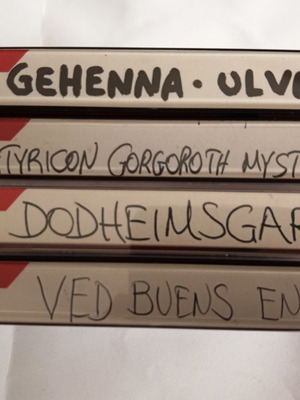 GEHENNA · ULV
TYRICON GORGOROTH MYST
DODHEIMSGAR
VED BUENS EN